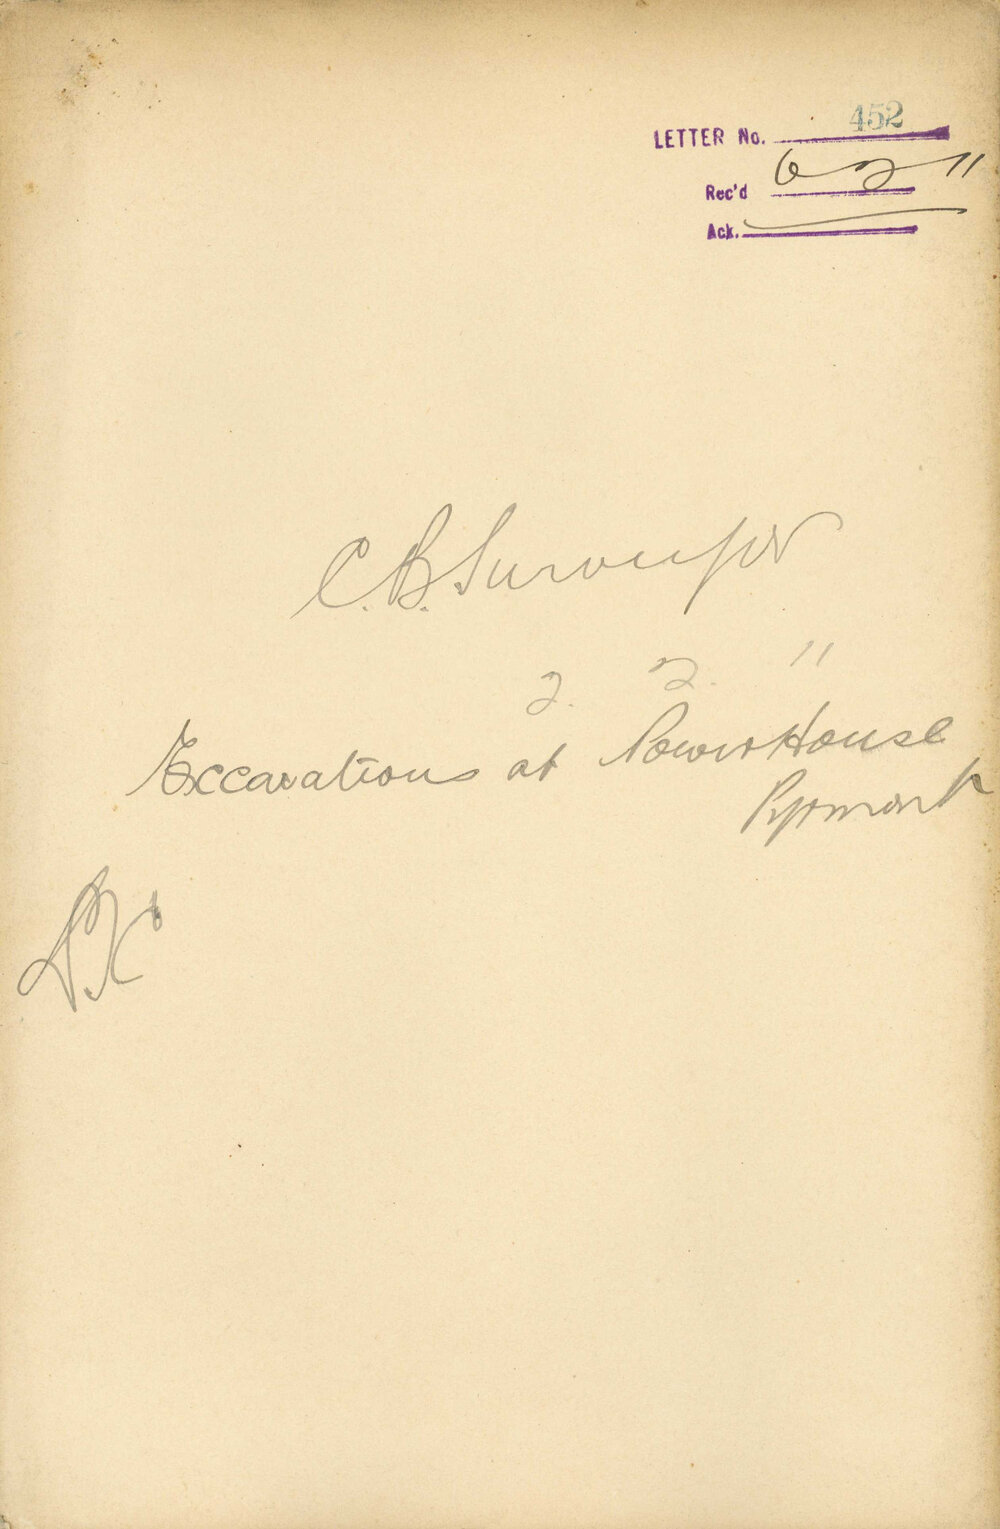 LETTER No. 452
Rec'd 6 2 11
Ack.
C. B. Surveyor
2. 2. 11
Excavations at Power House
Pyrmont